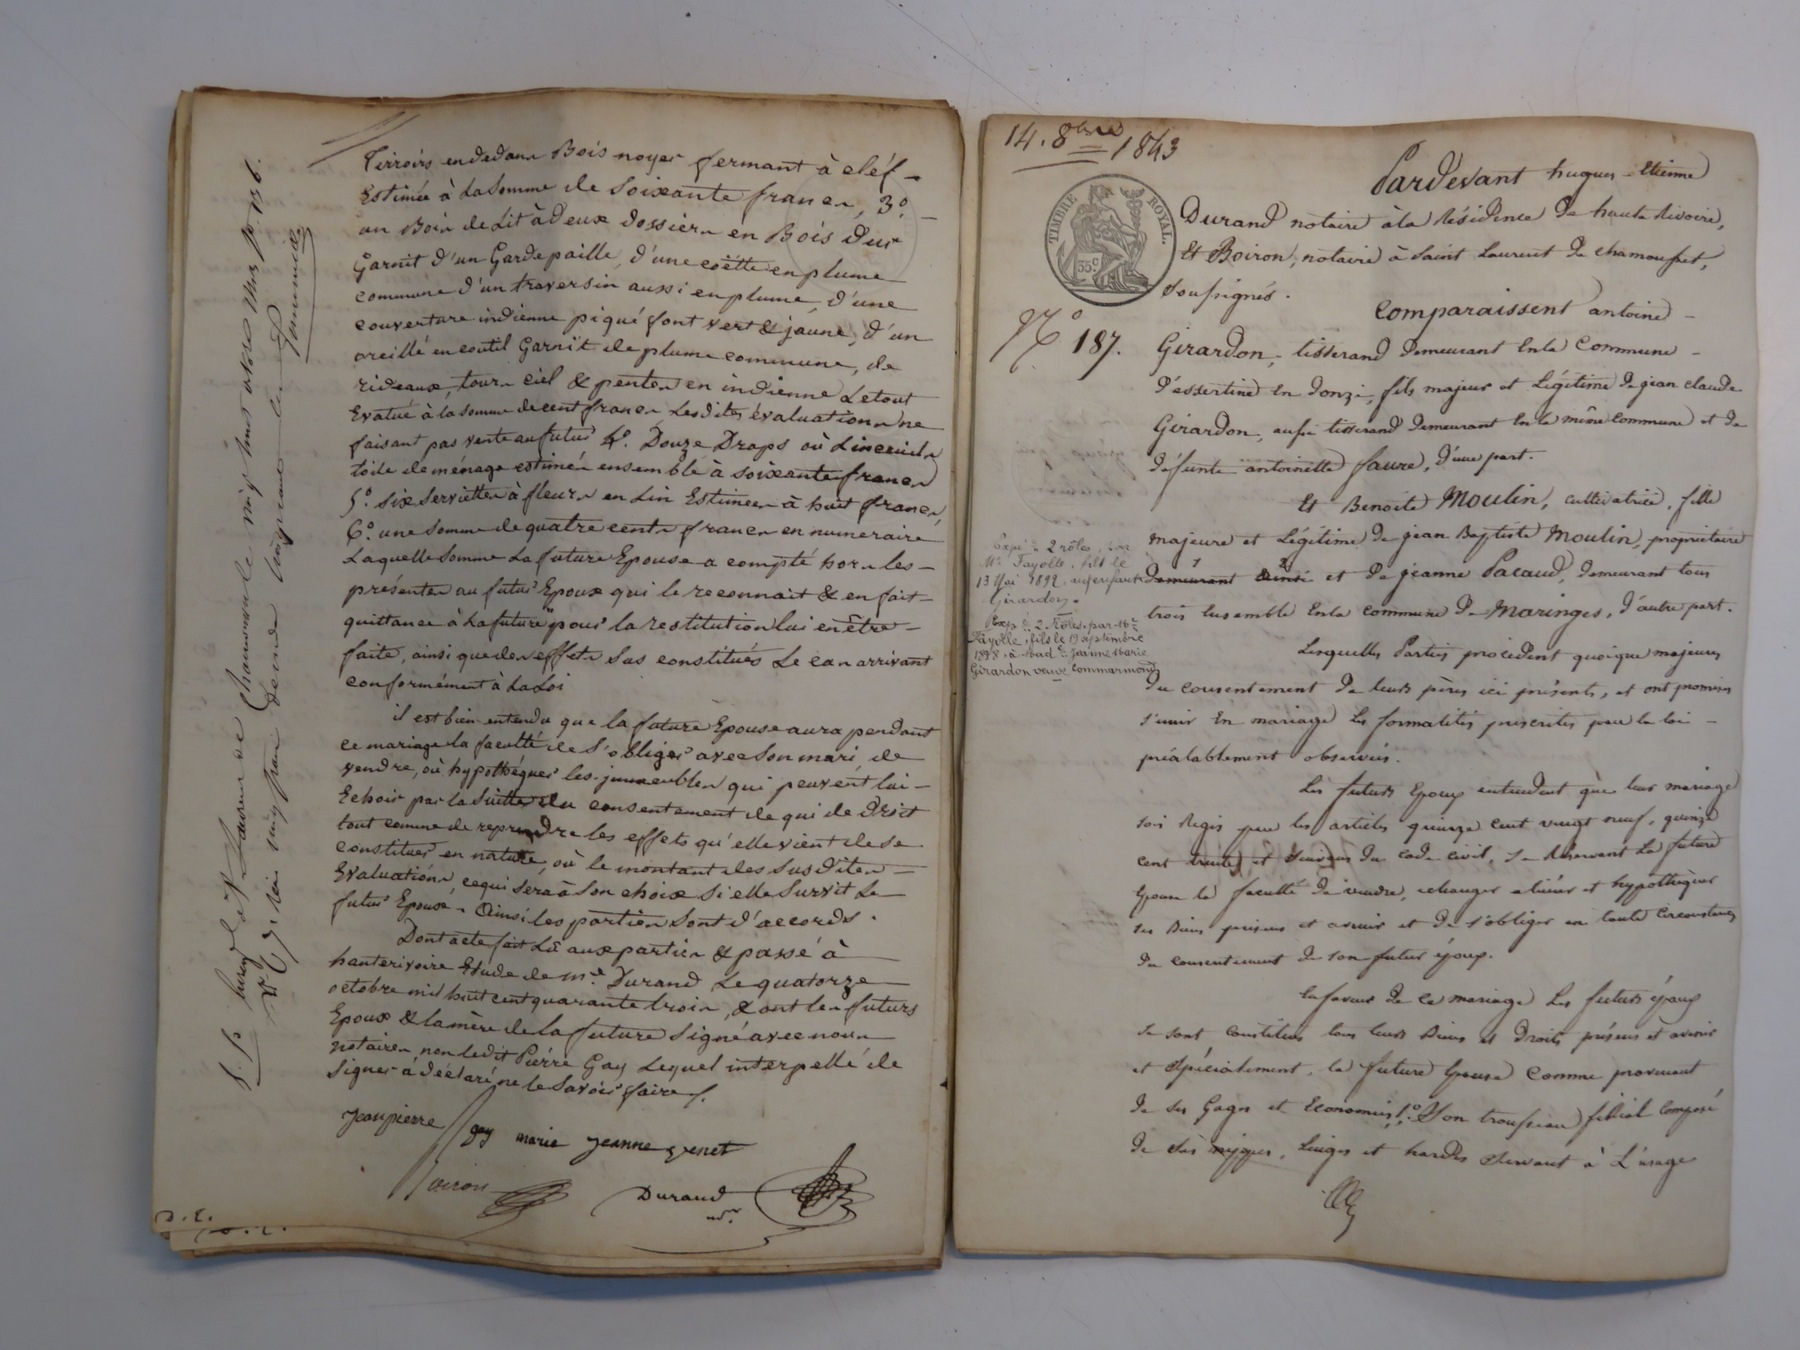 Tirroirs en dedans Bois noyer fermant à cléf –
Estimée à La somme de Soixante francs, 3.° –
un Bois de Lit à deux dossiers en Bois dur
Garnit d'un Garde paille, d'une coëtte en plume
commune d'un traversin aussi en plume, d'une
couverture indienne piqué font vert & jaune, d'un
oreillé en coutil Garnit de plume commune, de
rideaux, tours ciel & pentes en indienne Le tout
Evalué à la somme de cent francs Lesdites évaluations ne
faisant pas vente au futur 4.° Douze Draps où Linceuils
toile de ménage estimés ensemble à soixante francs
5.° six serviettes à fleurs en Lin Estimées à huit francs,
6.° une somme de quatre cents francs en numeraire
Laquelle somme La future Epouse a compté hors les –
présentes au futur Epoux qui le reconnait & en fait –
quittance à La future pour la restitution lui en être –
faite, ainsi que des effets sus constitués Le cas arrivant
conformément à La Loi
il est bien entendu que la future Epouse aura pendant
ce mariage la faculté de s'obliger avec son mari, de
vendre, où hypothéquer les immeubles qui peuvent lui –
Echoir par la suitte du consentement de qui de Droit
tout comme de reprendre les effets qu'elle vient de se
constituer en nature, où le montant des susdites –
Evaluations, ce qui sera à son choix si elle survit Le
futur Epoux. Ainsi les parties sont d'accords.
Dont acte fait Lû aux parties & passé à
hauterivoire Etude de m.e Durand Le quatorze
octobre mil huit cent quarante trois, & ont les futurs
Epoux & la mère de la future signé avec nous
notaires non Ledit Pierre Gay Lequel interpellé de
signer à déclaré ne le savoir faire /.
Jean pierre gay marie jeanne
Boiron Durand
n.re
14. 8bre 1843
TIMBRE ROYAL.
35c
N° 187.
Pardevant hugues – Etienne
Durand notaire à la Résidence de haute Rivoire,
Et Boiron, notaire à Saint Laurent de chamousset,
soussignés.
Comparaissent antoine –
Girardon, tisserand demeurant En la Commune –
d'essertine En donzi, fils majeur et Légitime de jean claude
Girardon, aussi tisserand demeurant En la même Commune et de
défunte antoinette faure, d'une part.
Et Benoite Moulin, cultivatrice, fille
majeure et Légitime de jean Baptiste Moulin, propriétaire
demeurant et de jeanne Pacaud, demeurant tous
trois Ensemble En la commune de Maringes, d'autre part.
Expé 2 rôles
Me Fayolle, fils le
13 Mai 1892, aux enfants
Girardon.
Exp. 2 Rôles par Me
Fayolle, fils le 19 septembre
1898 à Mad.e Jeanne Marie
Girardon veuve Commarmond
Lesquelles Parties procèdent quoique majeures
du consentement de leurs pères ici présents, et ont promis
s'unir En mariage Les formalités prescrites par la loi –
préalablement observées.
Les futurs Epoux entendent que leur mariage
soit Régis par les articles quinze cent vingt neuf, quinze
cent trente et suivans du code civil, se Réservant La future
Epouse la faculté de vendre, echanger aliéner et hypothéquer
ses Biens présens et avenir et de s'obliger en toute Circonstances
du consentement de son futur époux.
En faveur de ce mariage Les futurs époux
se sont constitués tous leurs Biens et Droits présens et avenir
et spécialement, la future Epouse comme provenant
de ses Gages et Economies, 1.° Son trousseau filial Composé
de ses nippes, Linges et hardes servant à L'usage